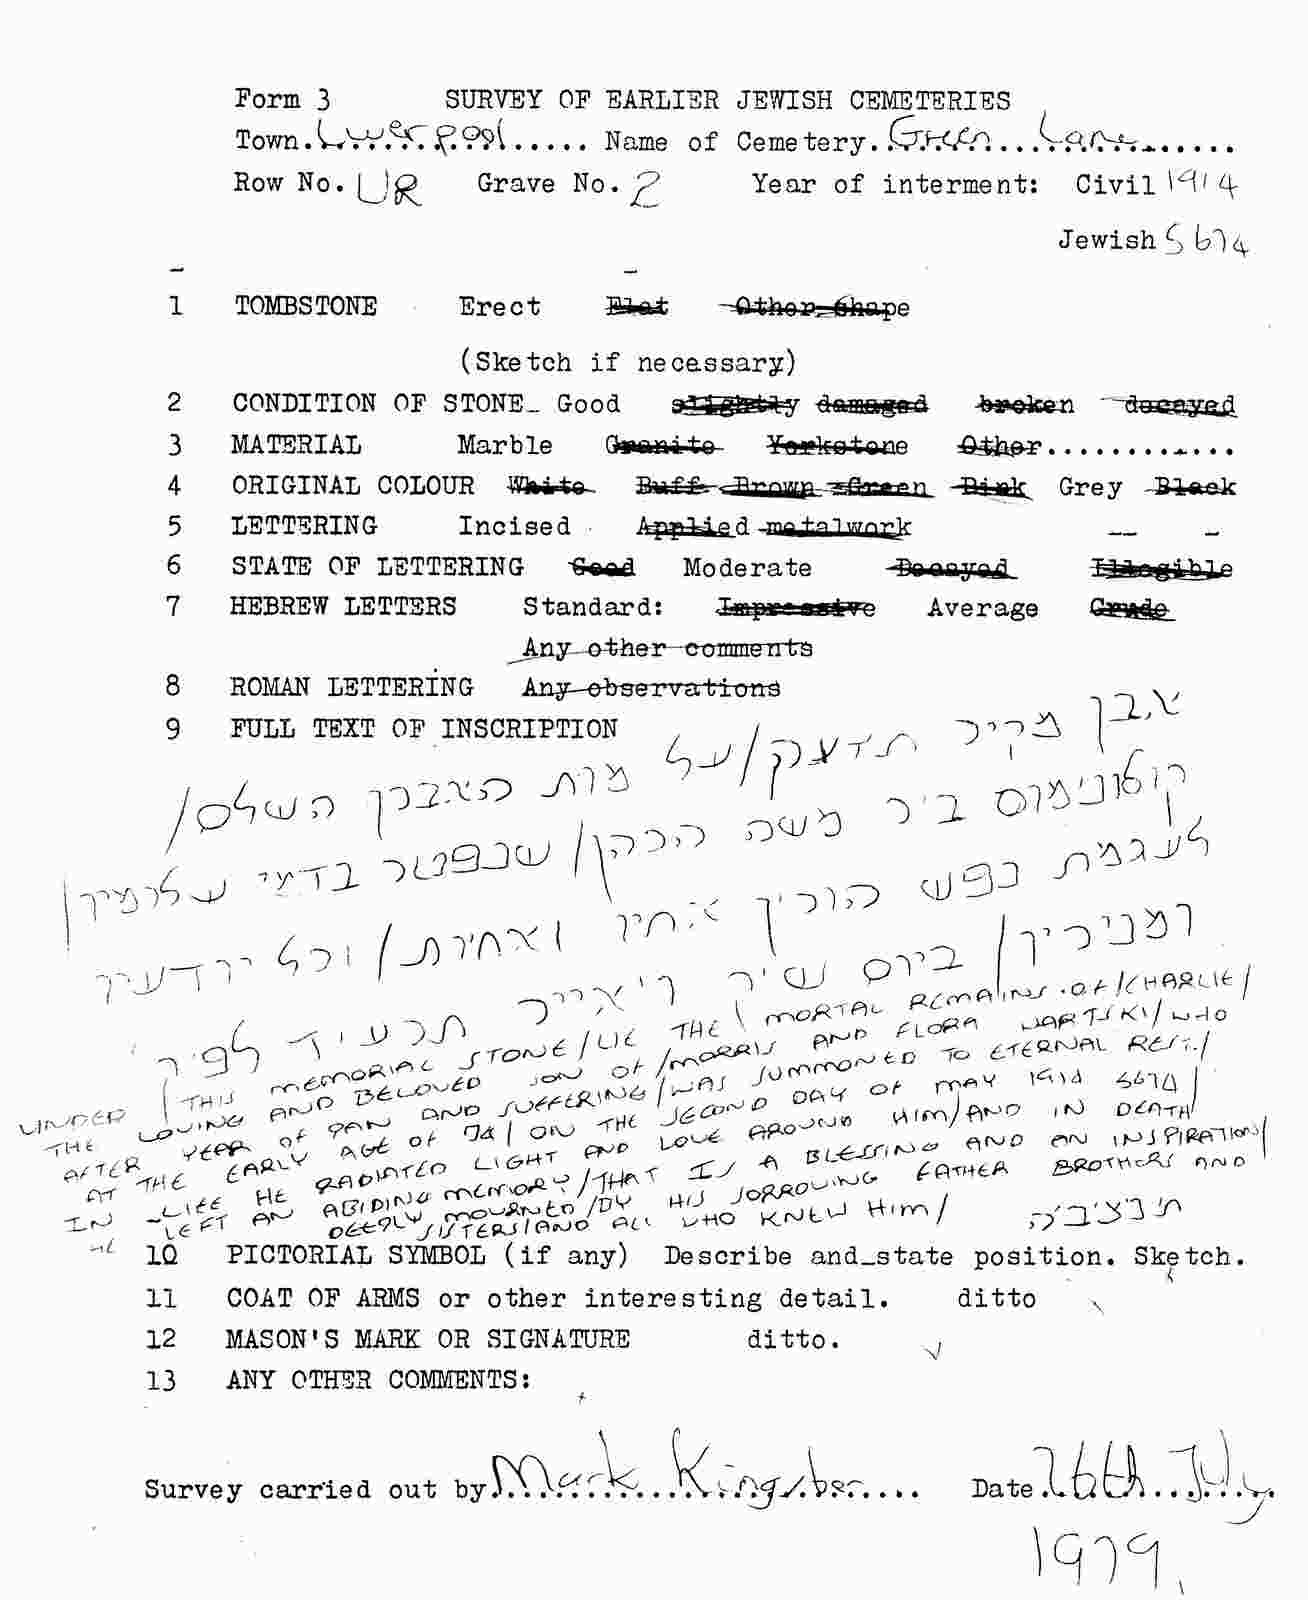 Form 3 SURVEY OF EARLIER JEWISH CEMETERIES
Town. Liverpool ..... Name of Cemetery. Green Lane
Row No. UR Grave No. 2 Year of interment: Civil 1914
Jewish 5674
1 TOMBSTONE Erect Flat Other Shape
(Sketch if necessary)
2 CONDITION OF STONE Good slightly damaged broken decayed
3 MATERIAL Marble Granite Yorkstone Other............
4 ORIGINAL COLOUR White Buff Brown Green Pink Grey Black
5 LETTERING Incised Applied metalwork
6 STATE OF LETTERING Good Moderate Decayed Illegible
7 HEBREW LETTERS Standard: Impressive Average Crude
Any other comments
8 ROMAN LETTERING Any observations
9 FULL TEXT OF INSCRIPTION
אבן מקיר תזעק/על מות האברך השלם/
קלונימוס ב״ר משה הכהן/שנפטר בדמי
לעגמת נפש הוריו אחיו ואחיות/וכל יודעיו
ומכיריו/ביום ו׳ אייר לפ״ק
UNDER/THIS MEMORIAL STONE/LIE THE/MORTAL REMAINS OF/CHARLIE/
THE LOVING AND BELOVED SON OF/MORRIS AND FLORA WARTSKI/WHO
AFTER YEAR OF PAN AND SUFFERING/WAS SUMMONED TO ETERNAL REST/
AT THE EARLY AGE OF 24/ON THE SECOND DAY OF MAY 1914 5674/
IN LIFE HE RADIATED LIGHT AND LOVE AROUND HIM/AND IN DEATH/
LEFT AN ABIDING MEMORY/THAT IS A BLESSING AND AN INSPIRATION/
DEEPLY MOURNED/BY HIS SORROWING FATHER BROTHERS AND
SISTERS/AND ALL WHO KNEW HIM/ ת׳נ׳צ׳ב׳ה
10 PICTORIAL SYMBOL (if any) Describe and state position. Sketch.
11 COAT OF ARMS or other interesting detail. ditto
12 MASON'S MARK OR SIGNATURE ditto.
13 ANY OTHER COMMENTS:
Survey carried out by Mark Date 26th July
1979